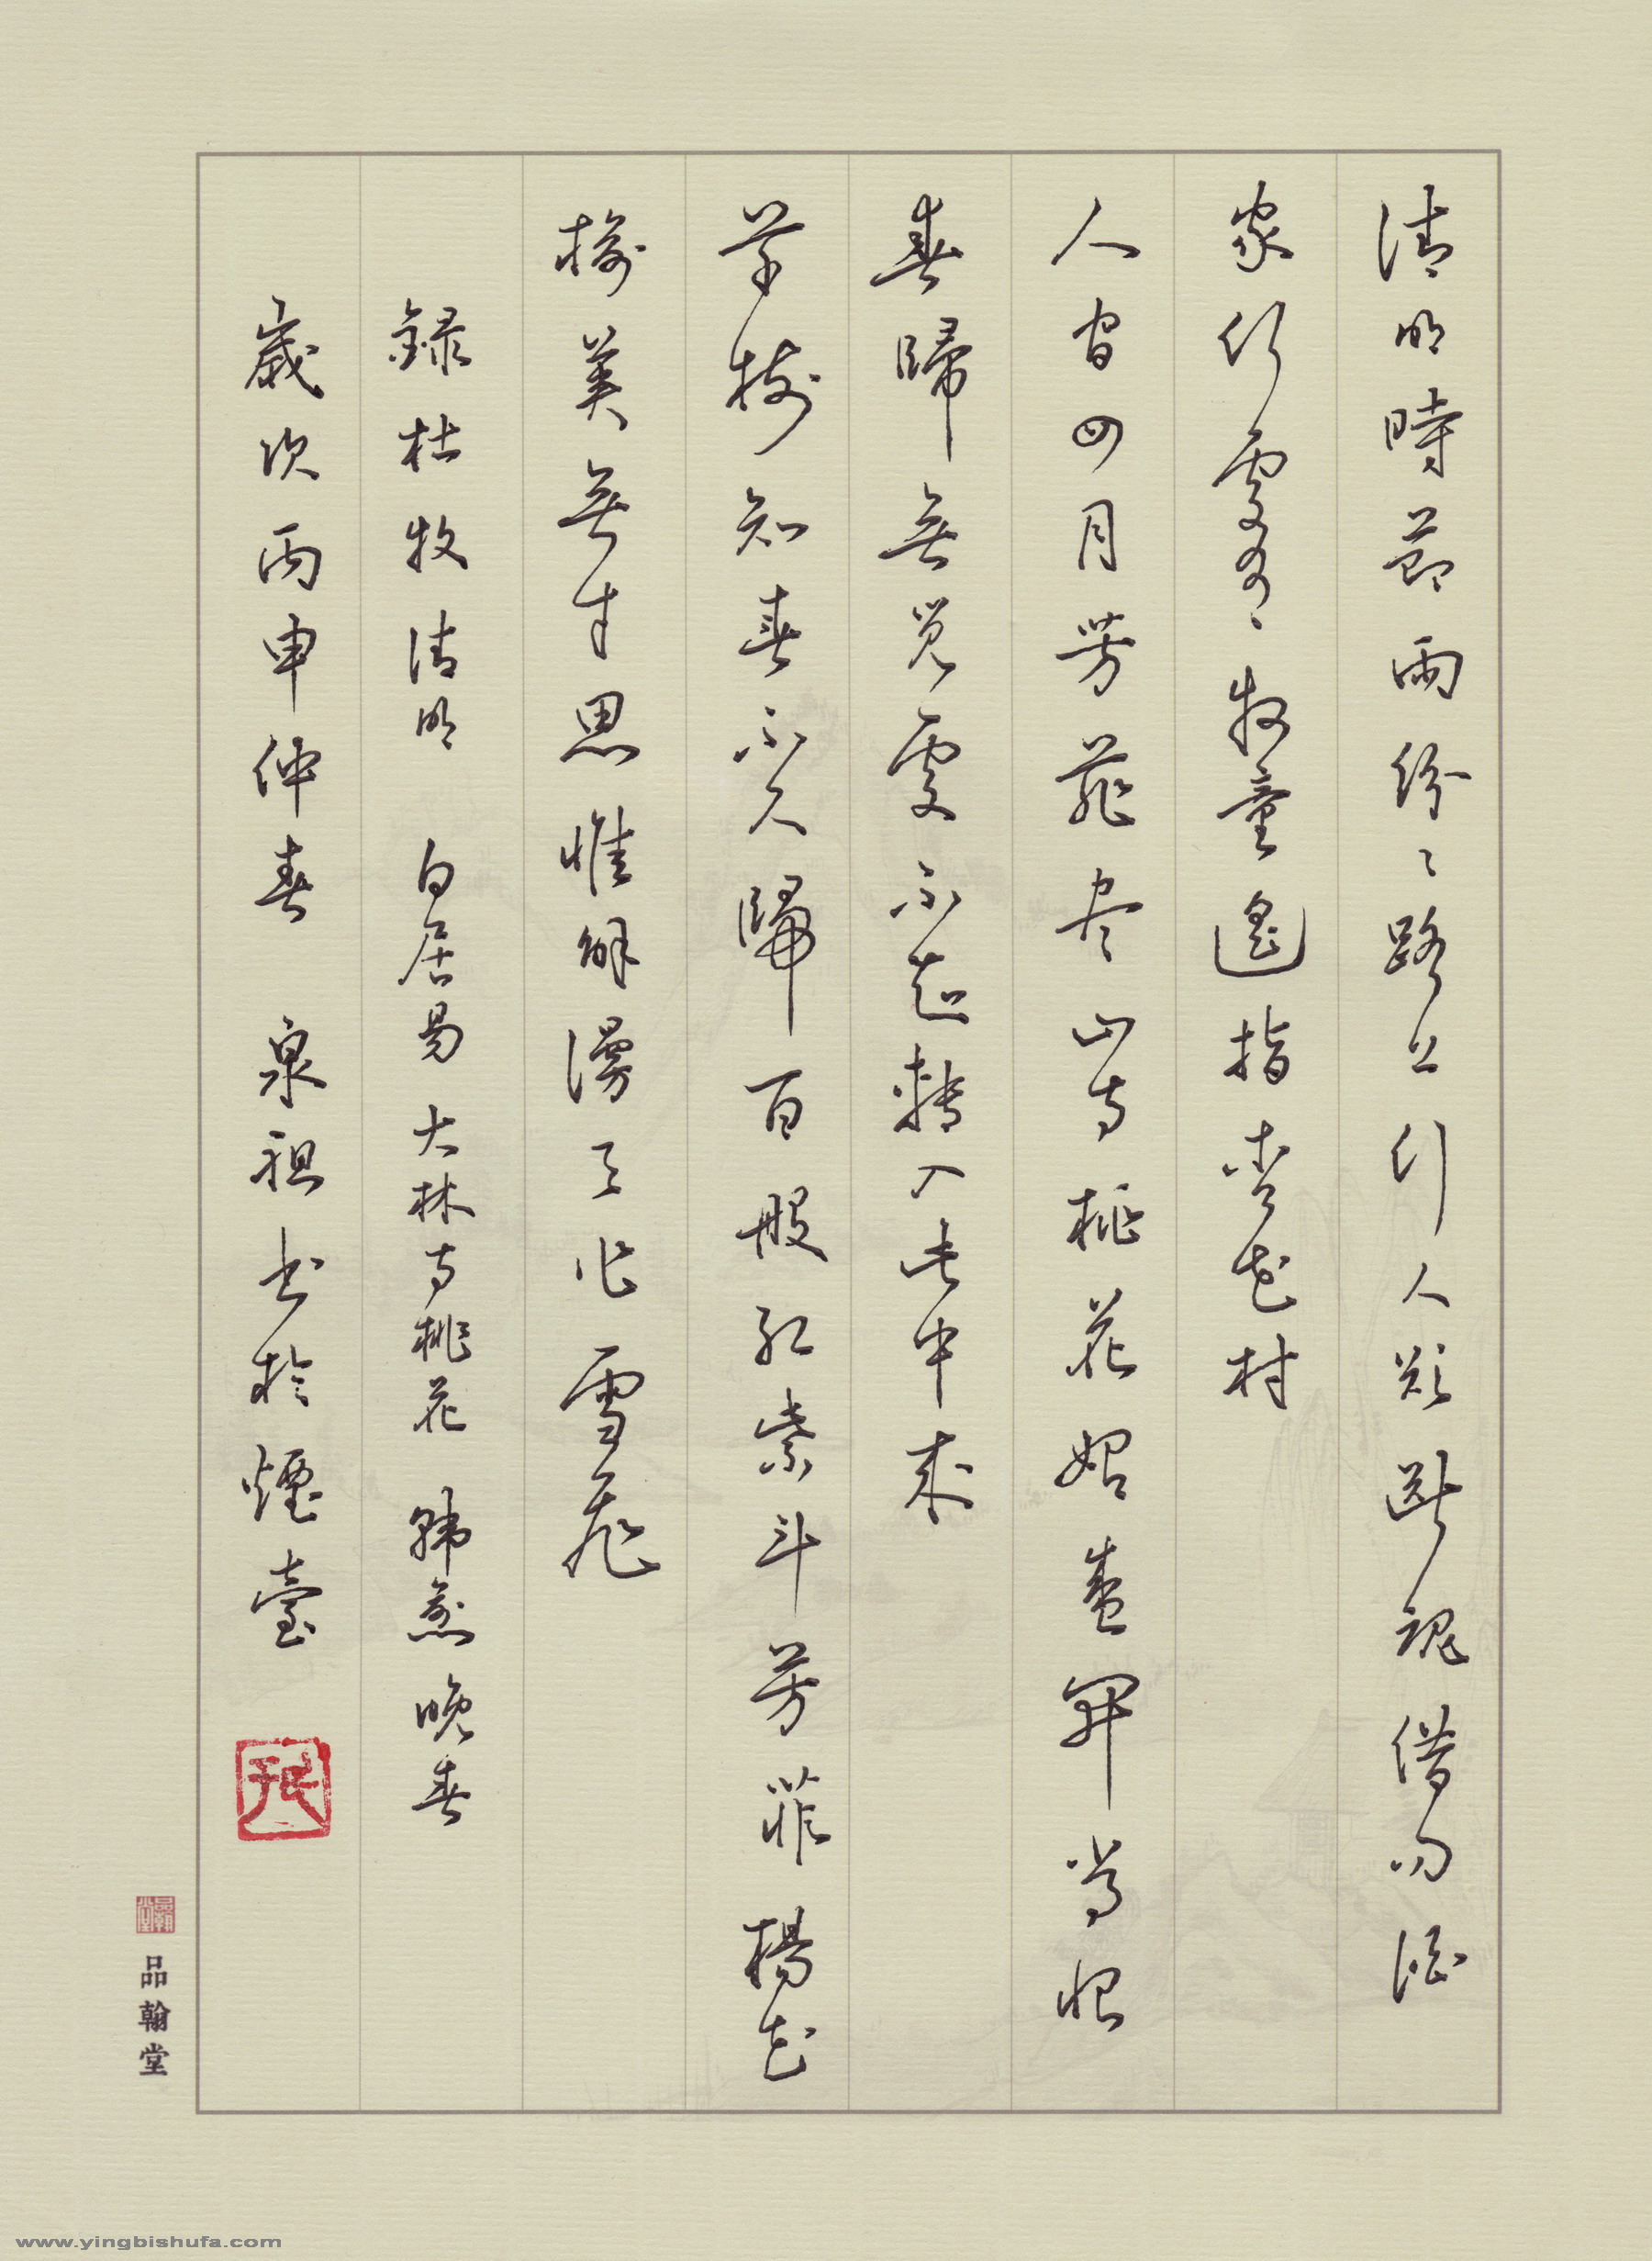 清明時節雨紛々路上行人欲斷魂借問酒
家何處有牧童遙指杏花村
人間四月芳菲尽山寺桃花始盛開常恨
春歸無覓處不知轉入此中來
草樹知春不久歸百般紅紫斗芳菲楊花
榆莢無才思惟解漫天作雪飛
錄杜牧清明 白居易大林寺桃花 韓愈晚春
歲次丙申仲春 泉祖书於煙臺
品翰堂
www.yingbishufa.com